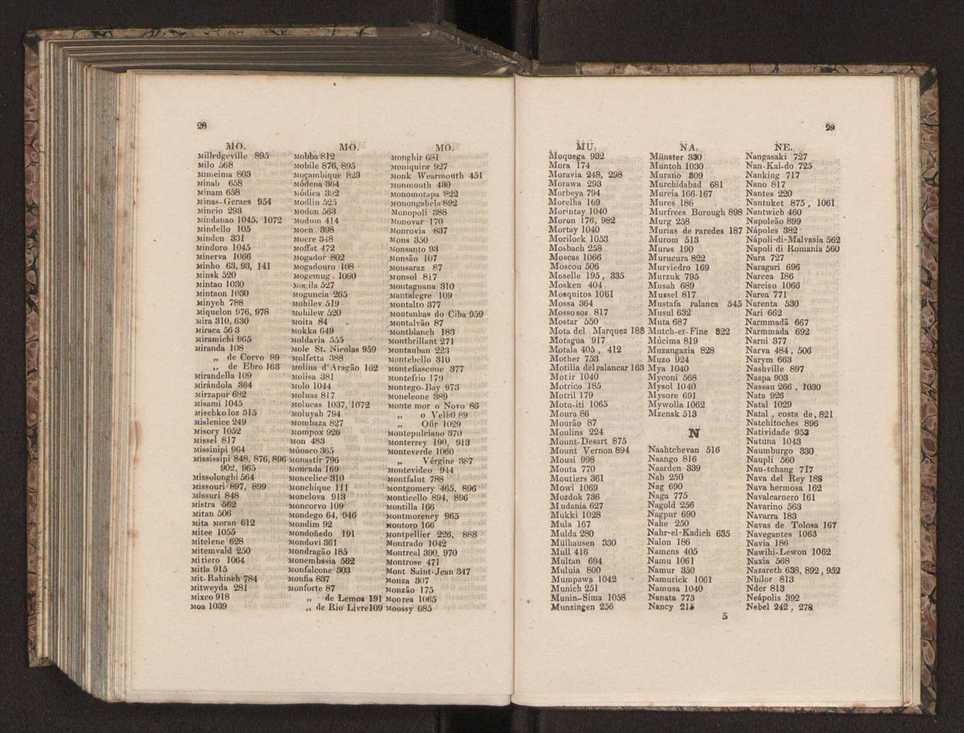 28
MO.
Milledgeville 895
Milo 568
Mimeima 803
Minab 658
Minam 658
Minas-Geraes 954
Mincio 293
Mindanao 1045, 1072
Mindello 105
Minden 331
Mindoro 1045
Minerva 1066
Minho 63, 93, 141
Minsk 520
Mintao 1030
Mintaon 1030
Minyeh 788
Miquelon 976, 978
Mira 310, 630
Miraca 563
Miramichi 965
Miranda 108
„ de Corvo 89
„ de Ebro 163
Mirandella 109
Mirándola 364
Mirzapur 682
Misami 1045
Mischkoloz 515
Mislenice 249
Misory 1052
Missel 817
Missinipi 964
Mississipi 848, 876, 896
902, 965
Missolonghi 564
Missouri 897, 899
Missuri 848
Mistra 562
Mitan 506
Mita Moran 612
Mitee 1055
Mitelene 628
Mitemvald 250
Mitiero 1064
Mitla 915
Mit-Rahineh 784
Mitweyda 281
Mixco 918
Moa 1039
MO.
Mobba 812
Mobile 876, 895
Moçambique 823
Módena 364
Módica 392
Modlin 525
Modon 563
Modum 414
Moen 398
Moere 348
Moffat 472
Mogador 802
Mogadouro 108
Mogemug 1060
Mogila 527
Moguncia 265
Mohilev 519
Mohilew 520
Moita 84
Mokka 649
Moldavia 555
Mole St. Nicolas 959
Molfetta 388
Molina d'Aragão 162
Molisa 381
Molo 1044
Moluas 817
Molucas 1037, 1072
Moluyah 794
Mombaza 827
Mompox 926
Mon 483
Mónaco 365
Monastir 796
Moncada 169
Moncelice 310
Monchique 111
Monclova 913
Moncorvo 109
Mondego 64, 946
Mondim 92
Mondoñedo 191
Mondovi 361
Mondragão 185
Monembasia 562
Monfalcone 303
Monfia 837
Monforte 87
„ de Lemos 191
„ de Rio Livre 109
MO.
Monghir 681
Moniquire 927
Monk Wearmouth 451
Monmouth 430
Monomotapa 822
Monongahela 892
Monopoli 388
Monovar 170
Monrovia 837
Mons 350
Monsanto 93
Monsão 107
Monsaraz 87
Monsol 817
Montagnana 310
Montalegre 109
Montalto 377
Montanhas do Ciba 959
Montalvão 87
Montblanch 183
Montbrillant 271
Montauban 223
Montebello 310
Montefiascone 377
Montefrio 179
Montego-Bay 973
Moneleone 389
Monte mor o Novo 86
„ o Velho 89
„ Oûr 1029
Montepulciano 370
Monterrey 190, 913
Monteverde 1060
„ Vérgine 387
Montevideo 944
Montfalut 788
Montgomery 465, 896
Monticello 894, 896
Montilla 166
Montmorency 965
Montoro 166
Montpellier 226, 888
Montrado 1042
Montreal 300, 970
Montrose 471
Mont Saint-Jean 347
Monza 307
Monzão 175
Moorea 1065
Moossy 685
29
MU.
Moquega 932
Mora 174
Moravia 248, 298
Morawa 293
Morbeya 794
Morelha 169
Morintay 1040
Moron 176, 982
Mortay 1040
Morilock 1053
Mosbach 258
Moscas 1066
Moscou 506
Moselle 195, 335
Mosken 404
Mosquitos 1061
Mossa 364
Mossosos 817
Mostar 550
Mota del Marquez 188
Motagua 917
Motala 405, 412
Mother 753
Motilla del palancar 163
Motir 1040
Motrico 185
Motril 179
Motu-iti 1065
Moura 86
Mourão 87
Moulins 224
Mount-Desart 875
Mount Vernon 894
Mousi 998
Mouta 770
Moutiers 361
Mowi 1069
Mozdok 736
Mudania 627
Mukki 1028
Mula 167
Mulda 280
Mülhausen 330
Mull 416
Multan 694
Muluia 800
Mumpawa 1042
Munich 251
Munin-Sima 1058
Munzingen 256
NA.
Münster 330
Müntoh 1030
Murano 309
Murchidabad 681
Murcia 166-167
Mures 186
Murfrees Borough 898
Murg 258
Murias de raredes 187
Murom 513
Muros 190
Murucura 822
Murviedro 169
Murzuk 795
Musah 689
Mussel 817
Mustafa ralanca 545
Musul 632
Muta 687
Mutch-er-Fine 822
Múcima 819
Muzangazia 828
Muzo 924
Mya 1040
Myconi 568
Mysol 1040
Mysore 691
Mywolla 1062
Mzensk 513
N
Naahtchevan 516
Naango 816
Naarden 339
Nab 250
Nag 690
Naga 775
Nagold 256
Nagpur 690
Nahe 250
Nahr-el-Kadich 635
Nalon 186
Namens 405
Namu 1061
Namur 350
Namurick 1061
Namusa 1040
Nanata 773
Nancy 215
5
NE.
Nangasaki 727
Nan-Kai-do 725
Nanking 717
Nano 817
Nantes 220
Nantuket 875, 1061
Nantwich 460
Napoleão 899
Nápoles 382
Nápoli-di-Malvasia 562
Napoli di Romania 560
Nara 727
Naragari 696
Narcea 186
Narciso 1066
Narea 771
Narenta 530
Nari 662
Narmmadã 667
Narmmáda 692
Narni 377
Narva 484, 506
Narym 663
Nashville 897
Naspa 903
Nassau 266, 1030
Nata 926
Natal 1029
Natal, costa de, 821
Natchitoches 896
Natividade 953
Natuna 1043
Naumburgo 330
Naupli 560
Nau-tchang 717
Nava del Rey 188
Nava hermosa 162
Navalcarnero 161
Navarino 563
Navarra 183
Navas de Tolosa 167
Navegantes 1063
Navia 186
Nawihi-Lewon 1062
Naxia 568
Nazareth 638, 892, 952
Nbilor 813
Nder 813
Neápolis 392
Nebel 242, 278